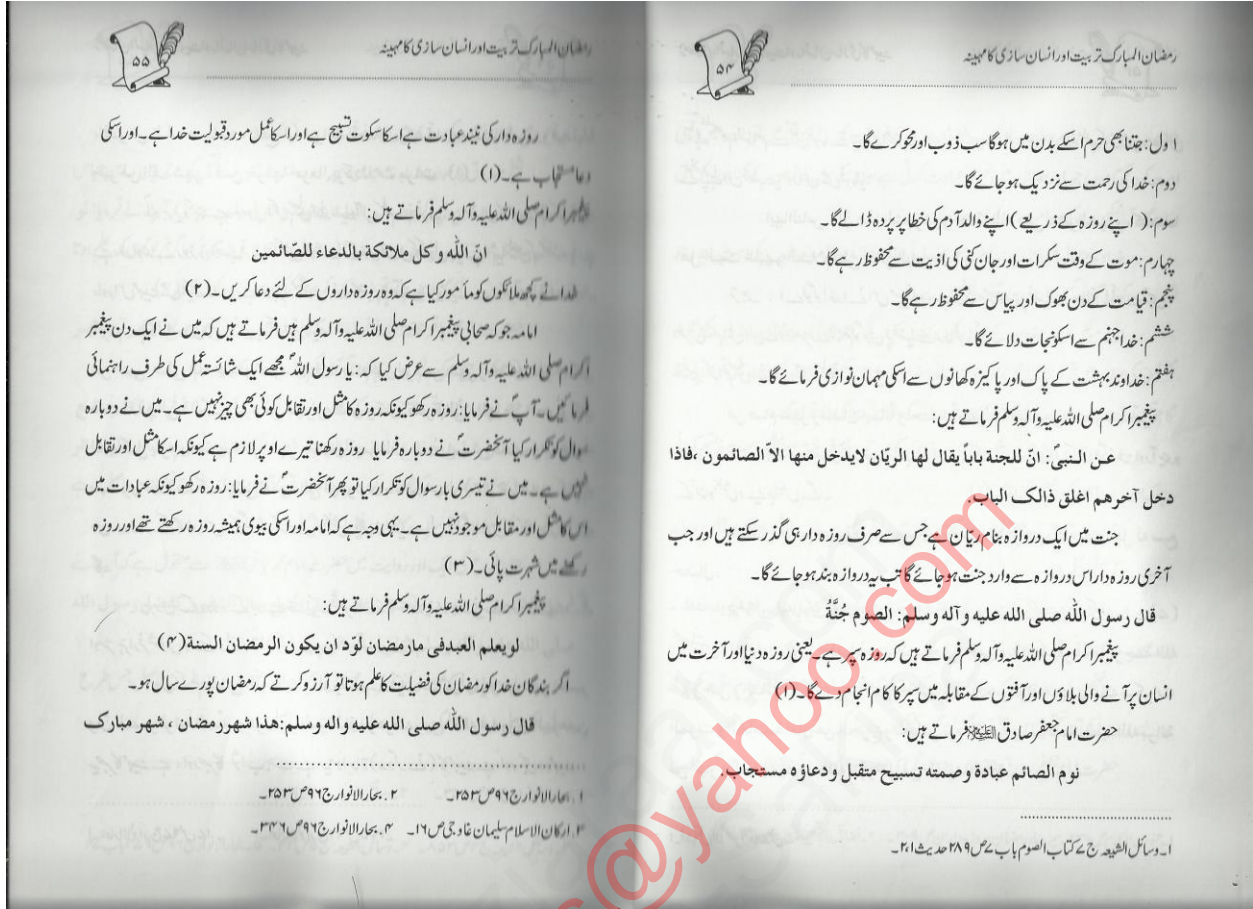 رمضان المبارک تربیت اور انسان سازی کا مہینہ
۵۴
اول: جتنا بھی حرم اسکے بدن میں ہوگا سب ذوب اور محو کرے گا۔
دوم: خدا کی رحمت سے نزدیک ہو جائے گا۔
سوم: (اپنے روزہ کے ذریعے) اپنے والد آدم کی خطا پر پردہ ڈالے گا۔
چہارم: موت کے وقت سکرات اور جان کنی کی اذیت سے محفوظ رہے گا۔
پنجم: قیامت کے دن بھوک اور پیاس سے محفوظ رہے گا۔
ششم: خدا جہنم سے اسکو نجات دلائے گا۔
ہفتم: خداوند بہشت کے پاک اور پاکیزہ کھانوں سے اسکی مہمان نوازی فرمائے گا۔
پیغمبر اکرام صلی اللہ علیہ وآلہ وسلم فرماتے ہیں:
عن النبیؐ: انّ للجنة باباً یقال لها الریّان لایدخل منها الاّ الصائمون ،فاذا
دخل آخرهم اغلق ذالک الباب.
جنت میں ایک دروازہ بنام ریان ہے جس سے صرف روزہ دار ہی گذر سکتے ہیں اور جب
آخری روزہ دار اس دروازہ سے وارد جنت ہو جائے گا تب یہ دروازہ بند ہو جائے گا۔
قال رسول اللّٰه صلى الله عليه و آله وسلم: الصوم جُنَّةٌ
پیغمبر اکرام صلی اللہ علیہ وآلہ وسلم فرماتے ہیں کہ روزہ سپر ہے۔ یعنی روزہ دنیا اور آخرت میں
انسان پر آنے والی بلاؤں اور آفتوں کے مقابلہ میں سپر کا کام انجام دے گا۔(۱)
حضرت امام جعفر صادق علیہ السلام فرماتے ہیں:
نوم الصائم عبادة وصمته تسبیح متقبل ودعاؤه مستجاب.
۱۔وسائل الشیعہ ج ۷ کتاب الصوم باب ۷ ص ۲۸۹ حدیث ۲،۱۔
رمضان المبارک تربیت اور انسان سازی کا مہینہ
۵۵
روزہ دار کی نیند عبادت ہے اسکا سکوت تسبیح ہے اور اسکا عمل مورد قبولیت خدا ہے۔ اور اسکی
دعا مستجاب ہے۔(۱)
پیغمبر اکرام صلی اللہ علیہ وآلہ وسلم فرماتے ہیں:
انّ اللّٰه و کل ملائکة بالدعاء للصّائمین
خدا نے کچھ ملائکوں کو مأمور کیا ہے کہ وہ روزہ داروں کے لئے دعا کریں۔(۲)
امامہ جو کہ صحابی پیغمبر اکرام صلی اللہ علیہ وآلہ وسلم ہیں فرماتے ہیں کہ میں نے ایک دن پیغمبر
اکرام صلی اللہ علیہ وآلہ وسلم سے عرض کیا کہ: یا رسول اللہؐ مجھے ایک شائستہ عمل کی طرف راہنمائی
فرمائیں۔ آپؐ نے فرمایا: روزہ رکھو کیونکہ روزہ کا مثل اور تقابل کوئی بھی چیز نہیں ہے۔ میں نے دوبارہ
سوال کو تکرار کیا آنحضرتؐ نے دوبارہ فرمایا روزہ رکھنا تیرے اوپر لازم ہے کیونکہ اسکا مثل اور تقابل
نہیں ہے۔ میں نے تیسری بار سوال کو تکرار کیا تو پھر آنحضرتؐ نے فرمایا: روزہ رکھو کیونکہ عبادات میں
اس کا مثل اور مقابل موجود نہیں ہے۔ یہی وجہ ہے کہ امامہ اور اسکی بیوی ہمیشہ روزہ رکھتے تھے اور روزہ
رکھنے میں شہرت پائی۔(۳)
پیغمبر اکرام صلی اللہ علیہ وآلہ وسلم فرماتے ہیں:
لویعلم العبدفی مارمضان لوّد ان یکون الرمضان السنة(۴)
اگر بندگان خدا کو رمضان کی فضیلت کا علم ہوتا تو آرزو کرتے کہ رمضان پورے سال ہو۔
قال رسول اللّٰه صلى الله عليه واله وسلم:هذا شهر رمضان ، شهر مبارک
۱۔بحارالانوار ج ۹۶ ص ۲۵۳۔ ۲۔بحارالانوار ج ۹۶ ص ۲۵۳۔
۳۔ارکان الاسلام سلیمان غاوجی ص ۱۶۔ ۴۔بحارالانوار ج ۹۶ ص ۳۴۶۔
s@yahoo.com